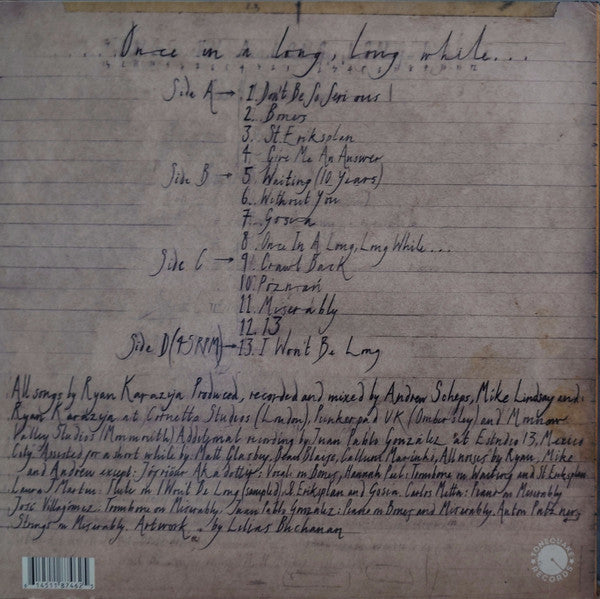 Once in a long, long while...
Side A → 1. Don't Be So Serious
2. Bones
3. St. Eriksplan
4. Give Me An Answer
Side B → 5. Waiting (10 Years)
6. Without You
7. Gosia
8. Once In A Long, Long While...
Side C → 9. Crawl Back
10. Poznań
11. Miserably
12. 13
Side D (45RPM) → 13. I Won't Be Long
All songs by Ryan Karazija Produced, recorded and mixed by Andrew Scheps, Mike Lindsay and
Ryan Karazija at Cornetto Studios (London), Punkerpad UK (Ombersley) and Monnow
Valley Studios (Monmouth) Additional recording by Juan Pablo González at Estudio 13, Mexico
City. Assisted for a short while by: Matt Glasbey, Callum All noises by Ryan, Mike
and Andrew except: Jófríður Ákadóttir: Vocals on Bones, Hannah Peel: Trombone on Waiting and St. Eriksplan
Laura J Martin: Flute on I Won't Be Long (sampled), St Eriksplan and Gosia. Carlos Piano on Miserably
José Villagómez: Trombone on Miserably. Juan Pablo González: Piano on Bones and Miserably. Anton
Strings on Miserably. Artwork by Lilias Buchanan
TONEQUAKE RECORDS